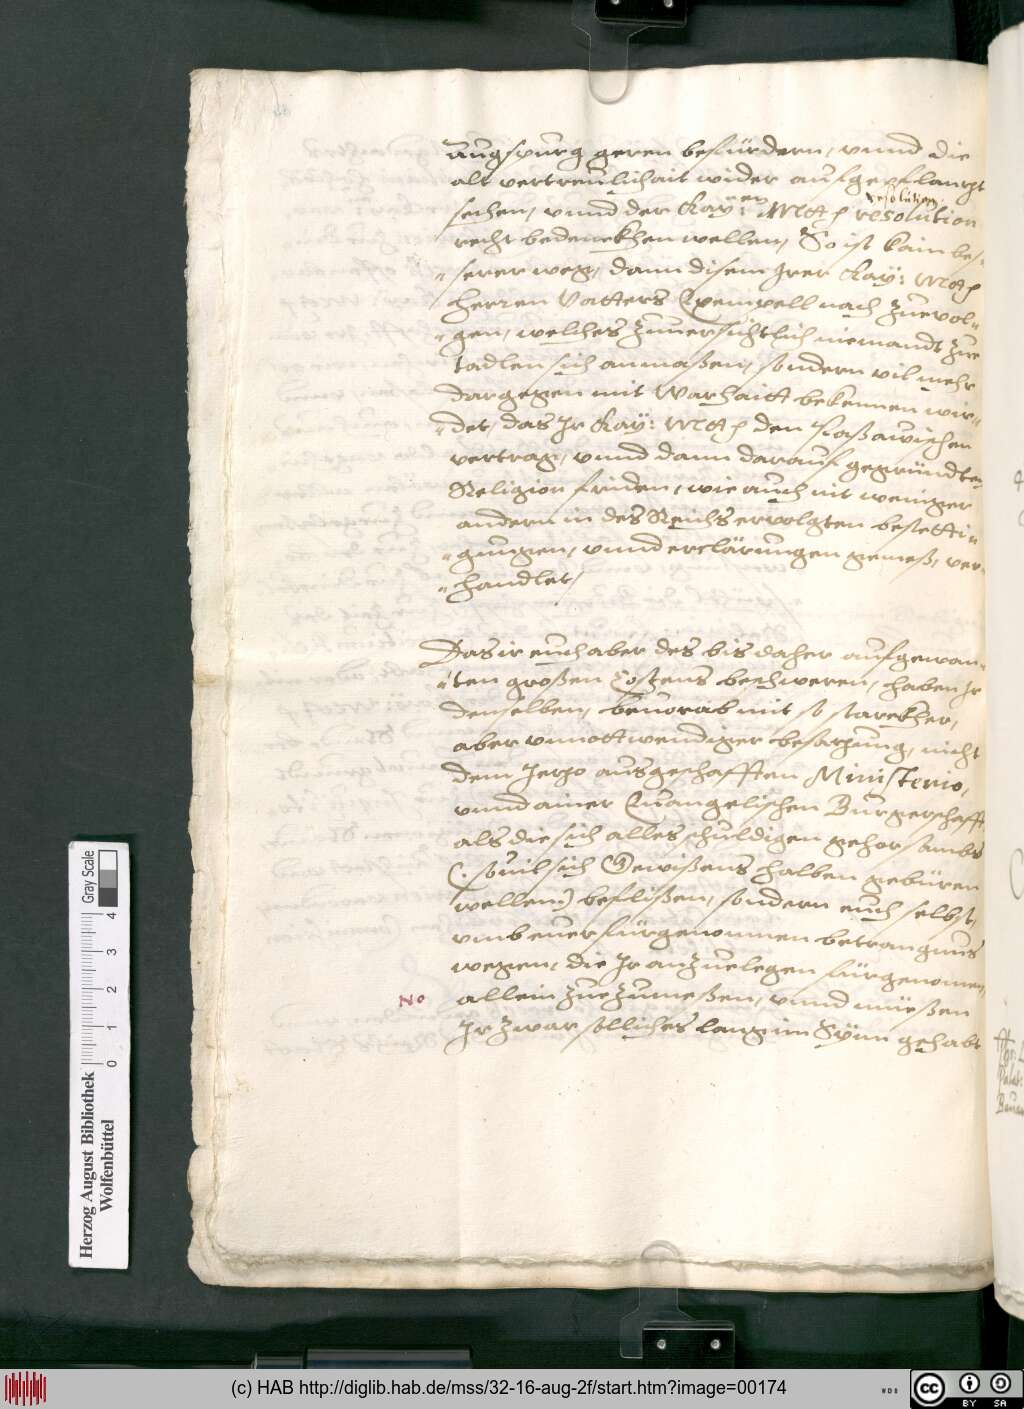 Augspurg geren befürdern, vnnd die
alt vertreulichait wider aufgepflantzt
sehen, vnnd der Kay: en Mtt resolution
resolution
recht bedenckhen wellen, So ist kain bes-
serer weg, dann disem Irer Kay: Mtt
herren Vatters Exempell nach zuevol-
gen, welches zuuersichtlich niemandt zue
tadlen sich anmaßen, sondern vil mehr
dargegen mit Warhaitt bekennen wir-
det, das Ir Kay: Mtt den Paßawischen
vertrag, vnnd dann darauf gegründten
Religion friden, wie auch nit weniger
andern in des Reichs ervolgten bestetti-
gungen, vnnd erclärungen gemeß, ver-
handlet,
Das ir euch aber des bis daher aufgewan-
ten großen Costens beschweren, haben Ir
denselben, beuorab mit so starckher,
aber vnnottwendiger besatzung, nicht
dem Jetzo ausgeschafften Ministerio,
vnnd ainer Euangelischen Burgerschafft
als die sich alles schuldigen gehorsambs
(: souil sich Gewißens halben gebüren
wellen:) beflißen, sondern euch selbst,
vmb euer fürgenommen betrangnus
wegen, die Ir anzuelegen fürgenomen,
No allein zuezumeßen, vnnd müeßen
Ir zwar solliches lang im Synn gehabt
Herzog August Bibliothek
Wolfenbüttel
0 1 2 3 4
Gray Scale
(c) HAB http://diglib.hab.de/mss/32-16-aug-2f/start.htm?image=00174
WDB
cc BY SA